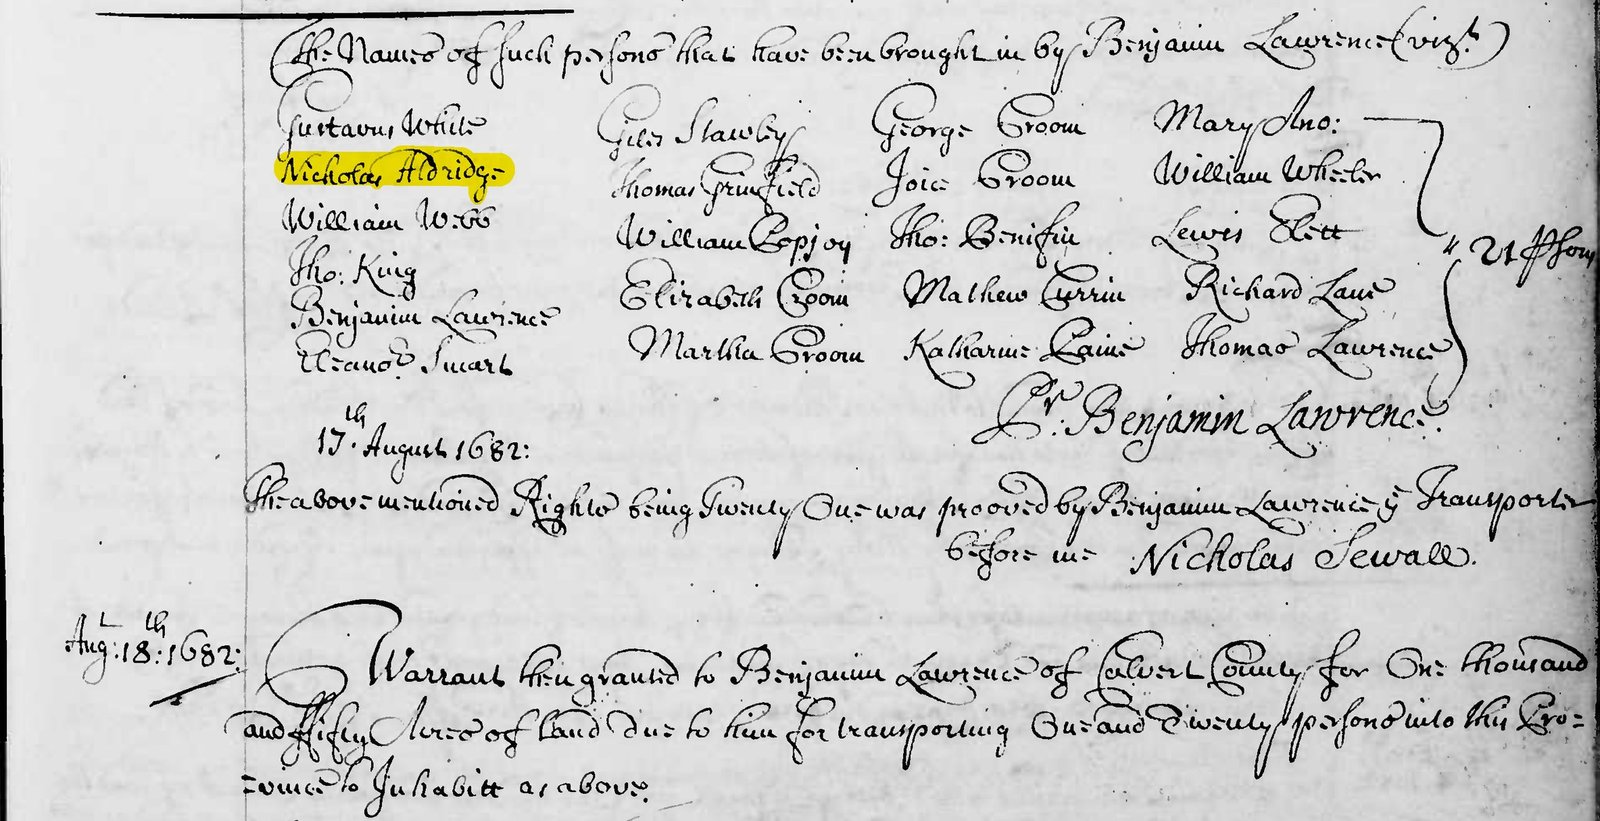 The Names of such persons that have been brought in by Benjamin Lawrence (vizt)
Gustavus White Giles Stawley George Groom Mary Ano:
Nicholas Aldridge Thomas Grinfield Joice Groom William Wheeler
William Webb William Popjoy Tho: Benifin Lewis Elett
Tho: King Elizabeth Groom Mathew Currin Richard Lane
Benjamin Lawrence Martha Groom Katharine Paine Thomas Lawrence
Eleanor Smart
21 psons
Pr: Benjamin Lawrence.
17th. August 1682:
The above mentioned Rights being Twenty One was prooved by Benjamin Lawrence ye Transporter
before me Nicholas Sewall.
Augt: 18th: 1682:
Warrant then granted to Benjamin Lawrence of Calvert County for One thousand
and ffifty Acres of Land due to him for transporting One and Twenty persons into this Pro=
=vince to Inhabitt as above.